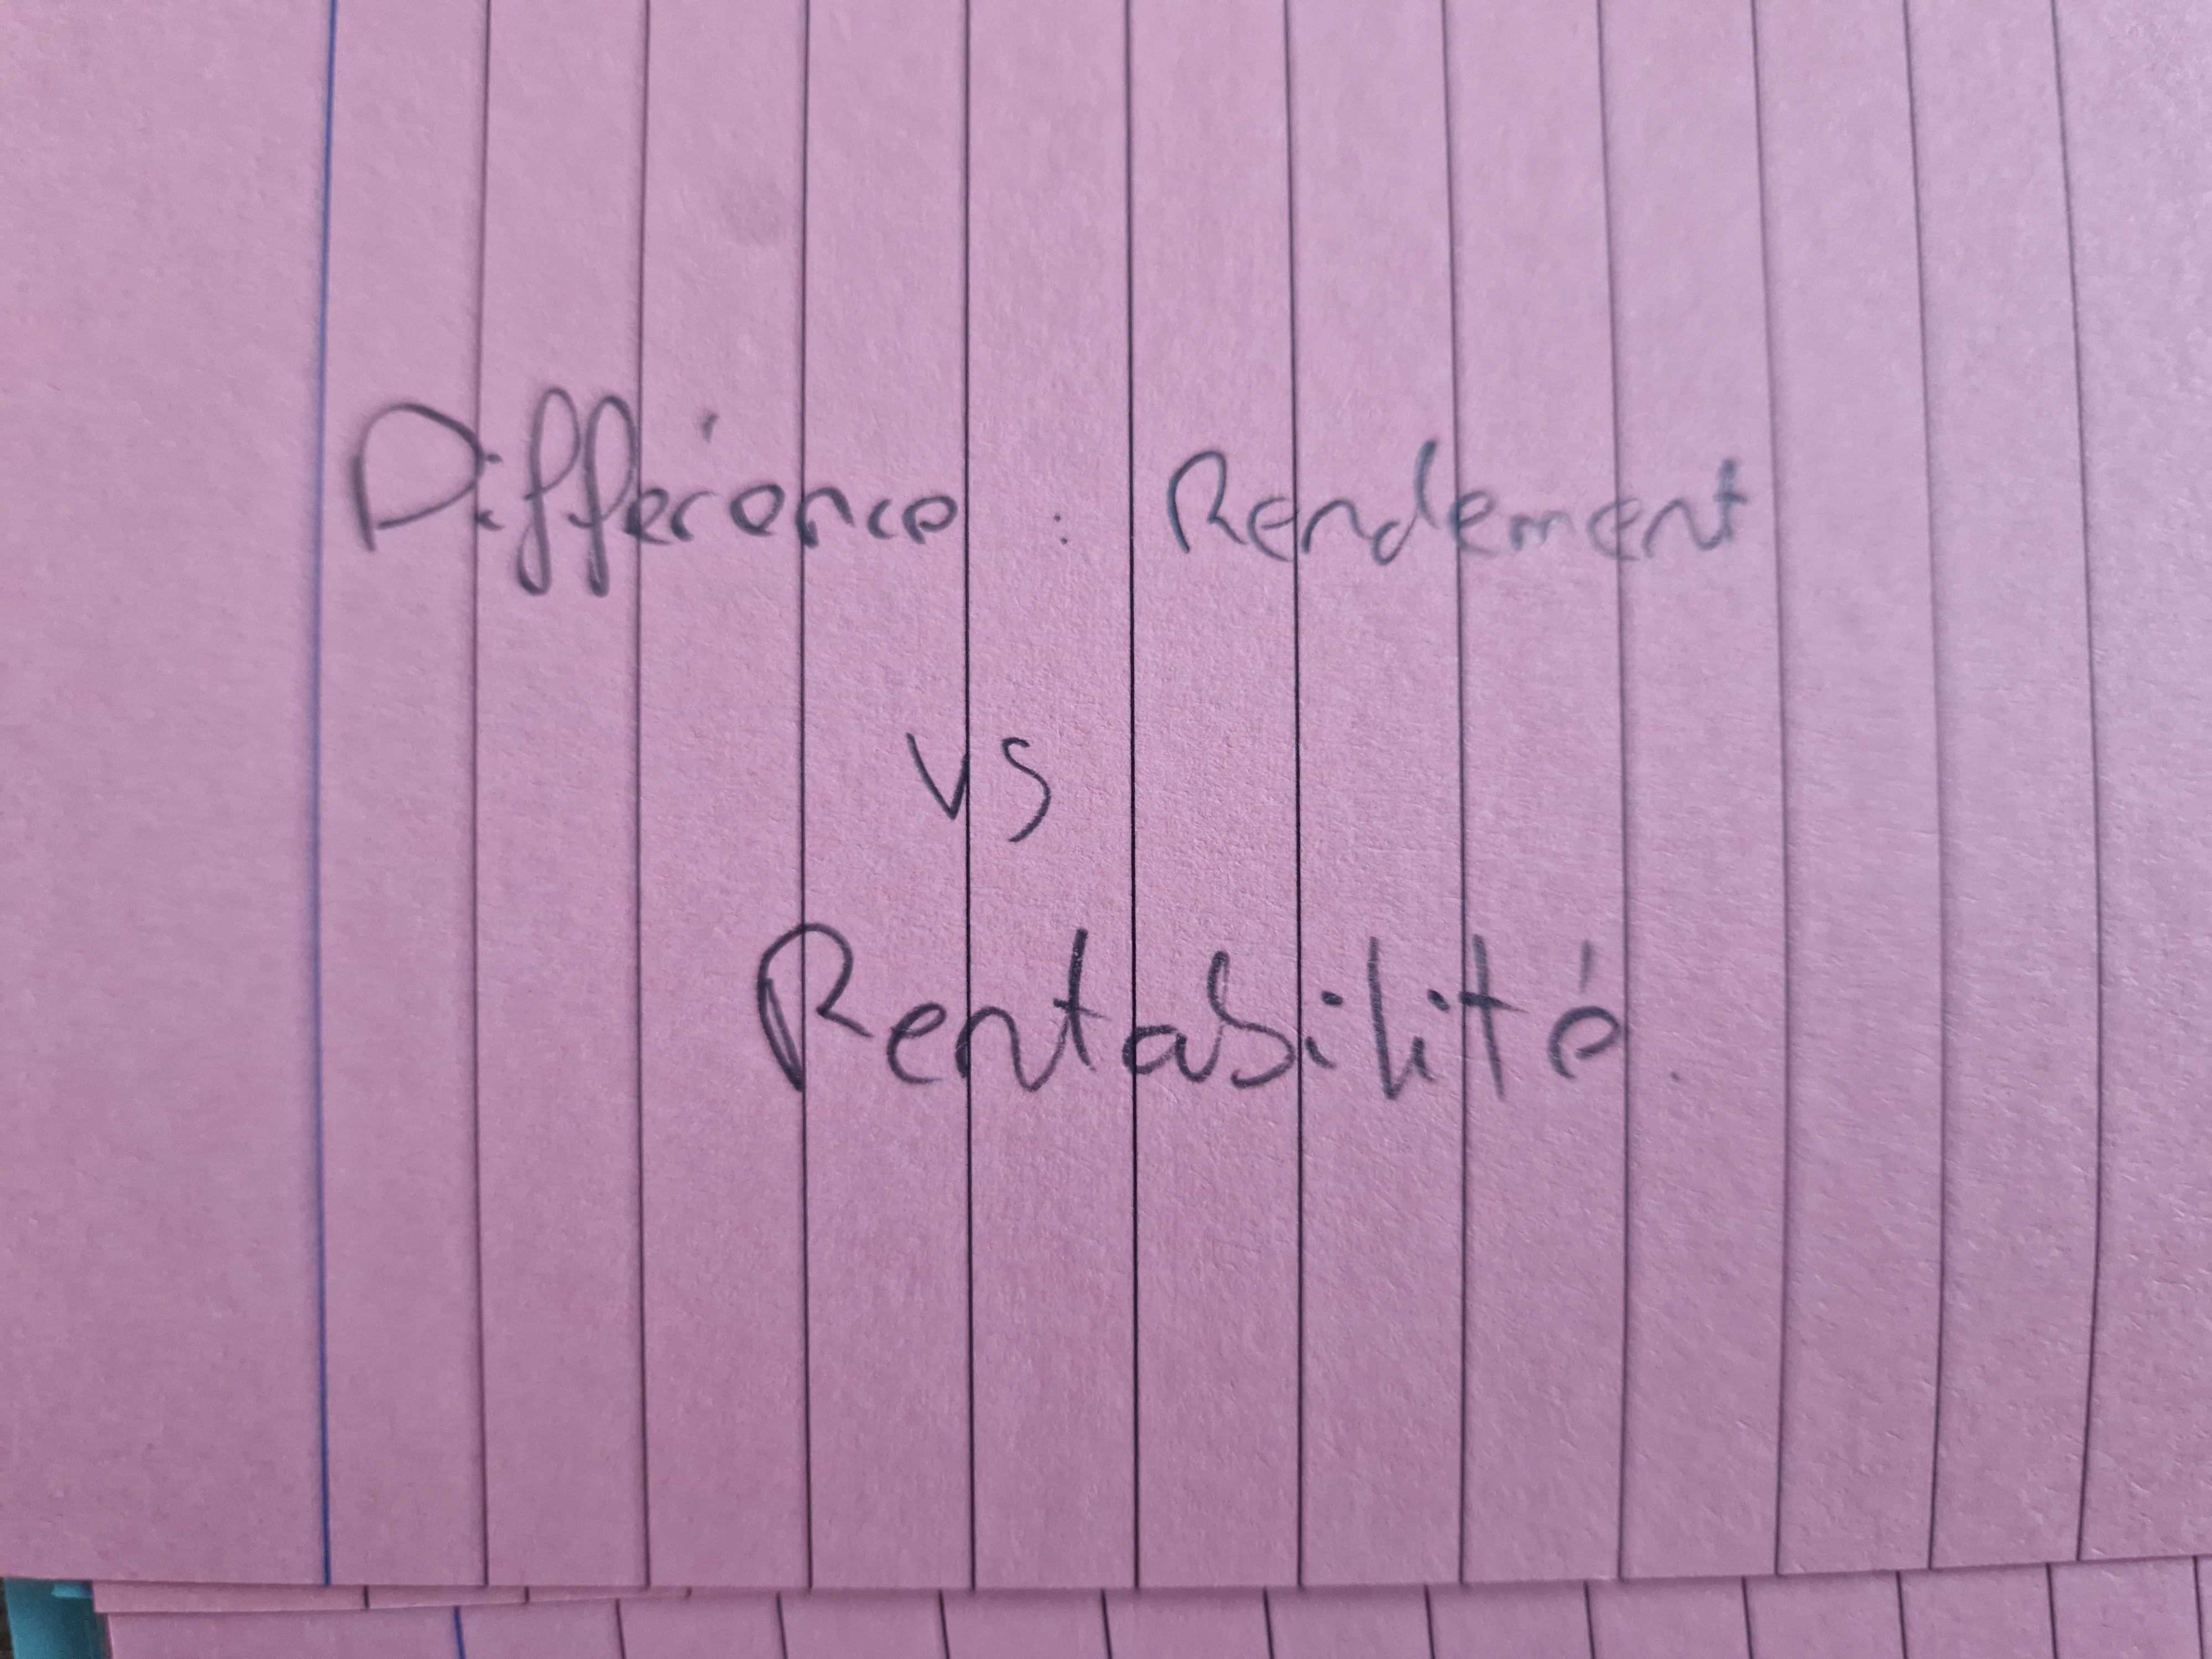 Différence : Rendement
vs
Rentabilité.